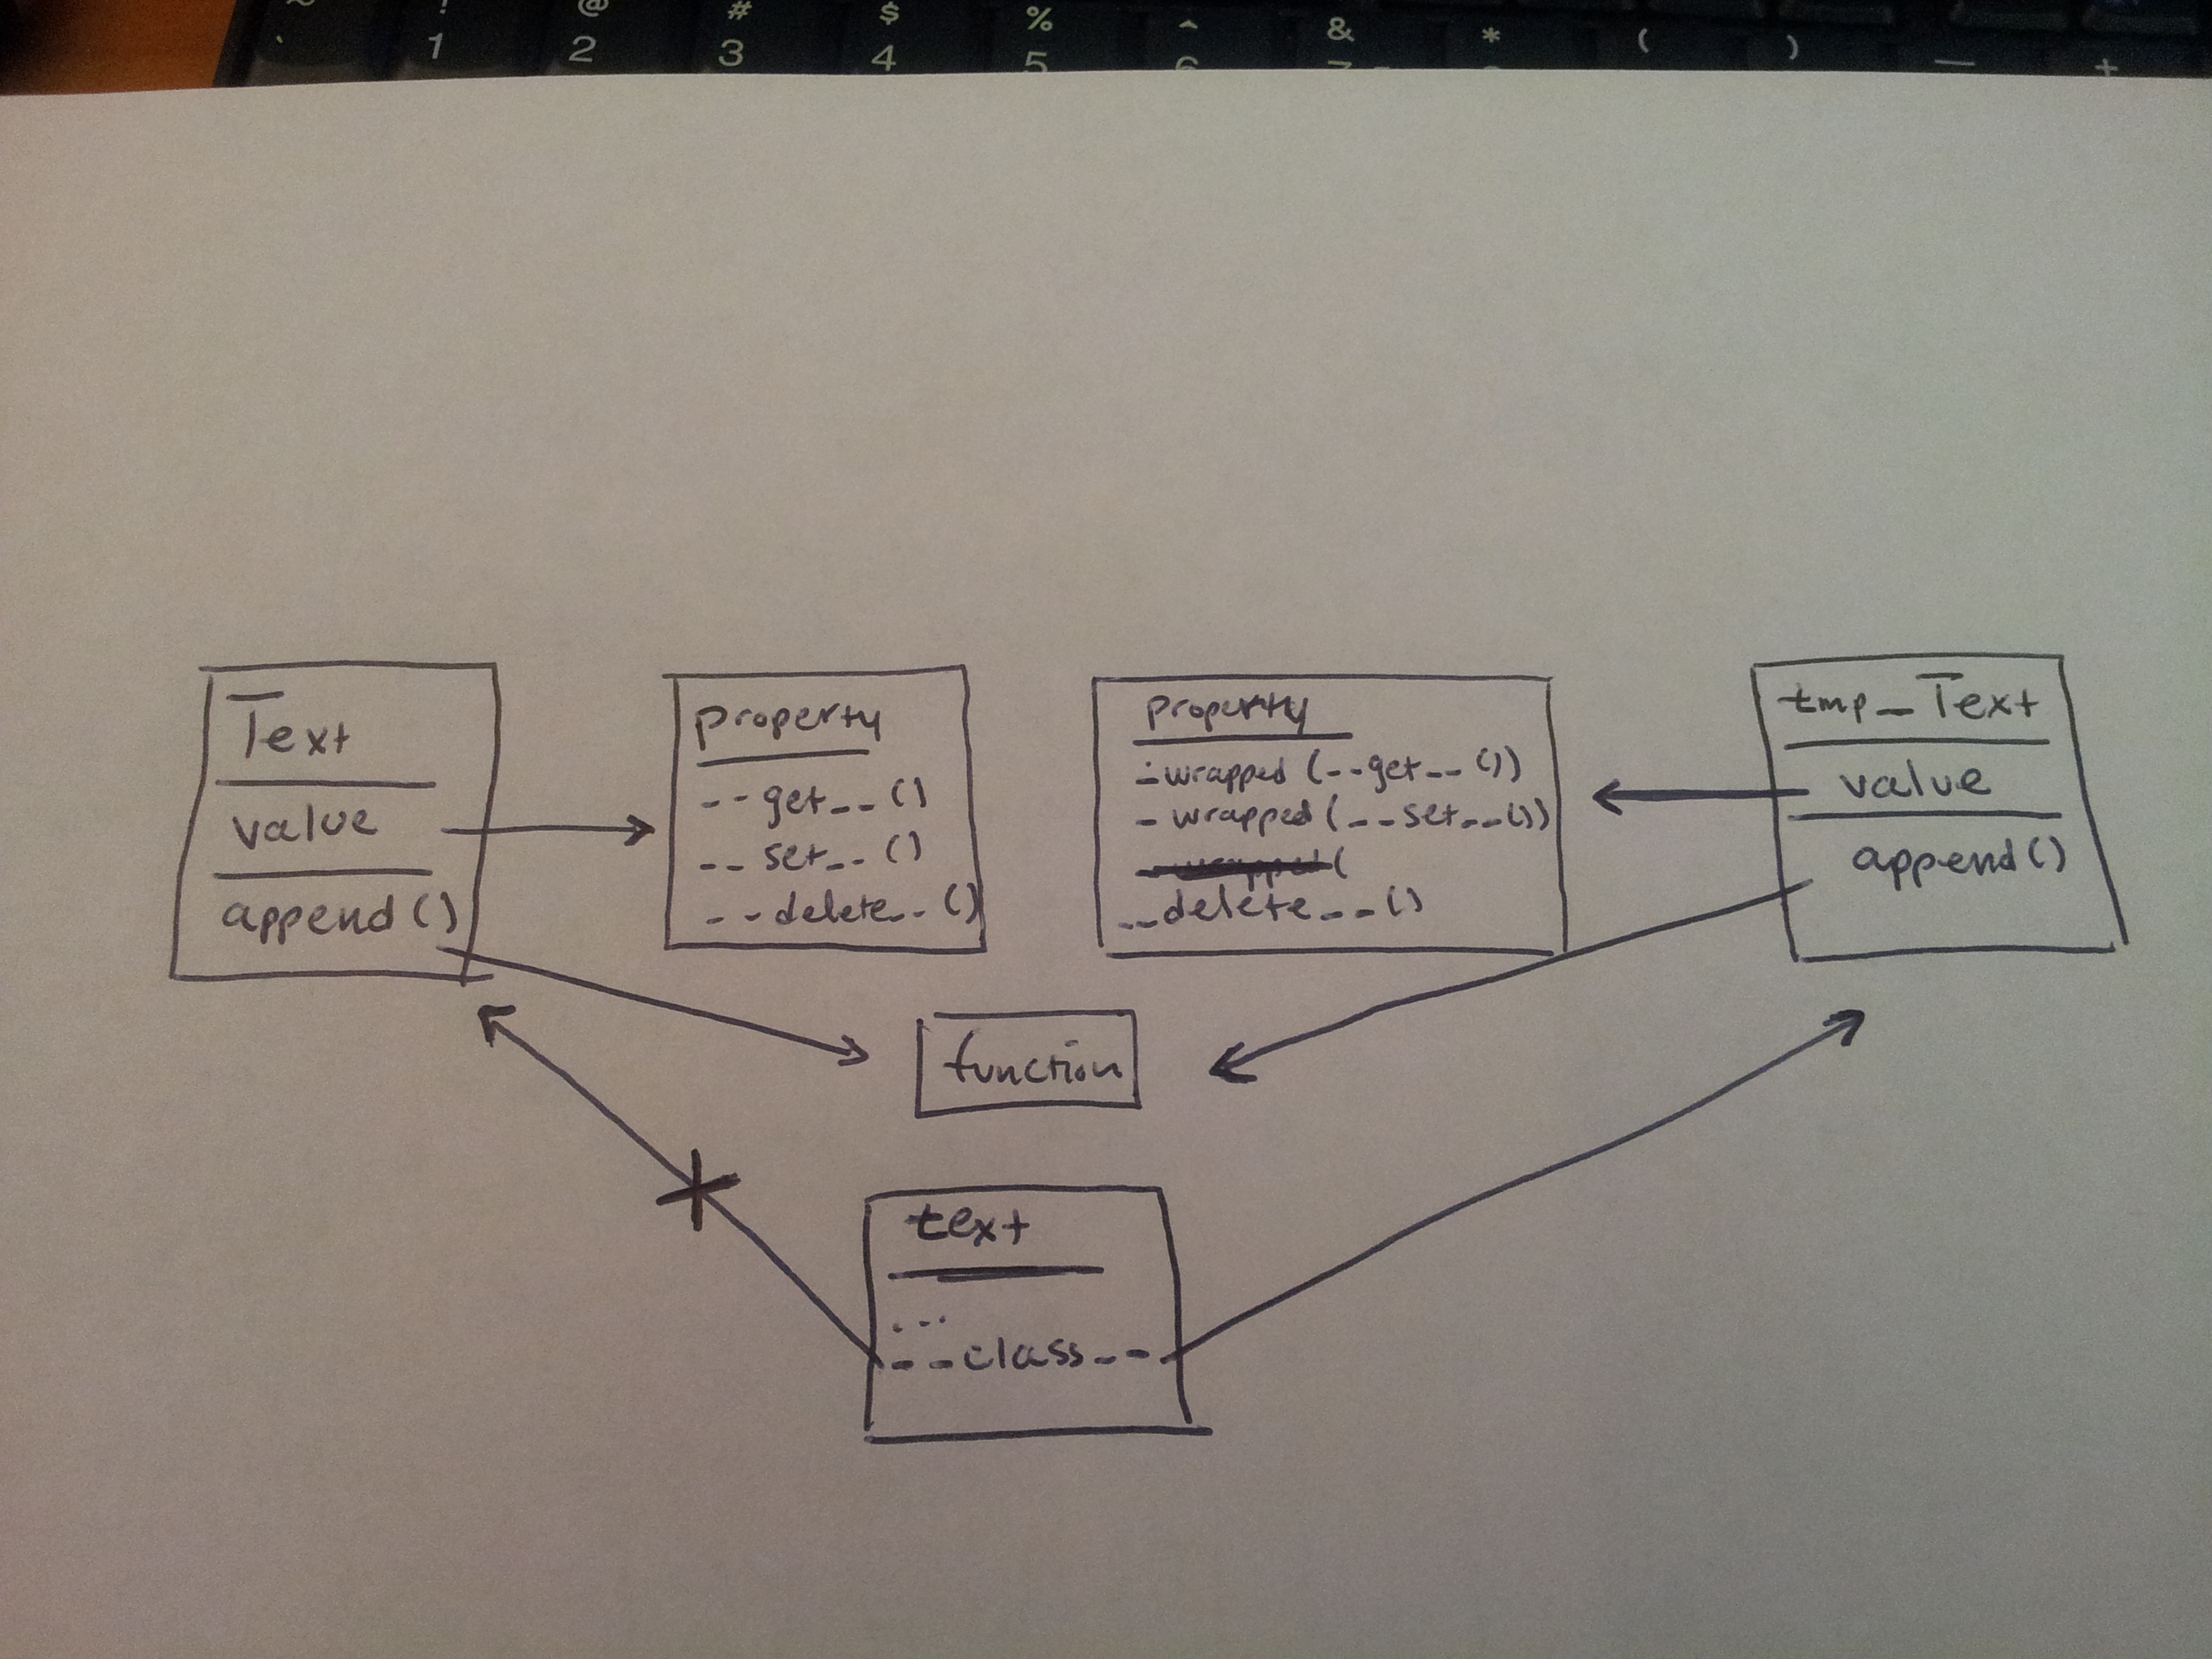 ~ ! @ # $ % ^ & * ( ) — +
` 1 2 3 4 5 6 7
Text
value
append()
property
--get--()
--set--()
--delete--()
property
-wrapped(--get--())
-wrapped(--set--())
-wrapped(
--delete--()
tmp_Text
value
append()
function
text
...
--class--